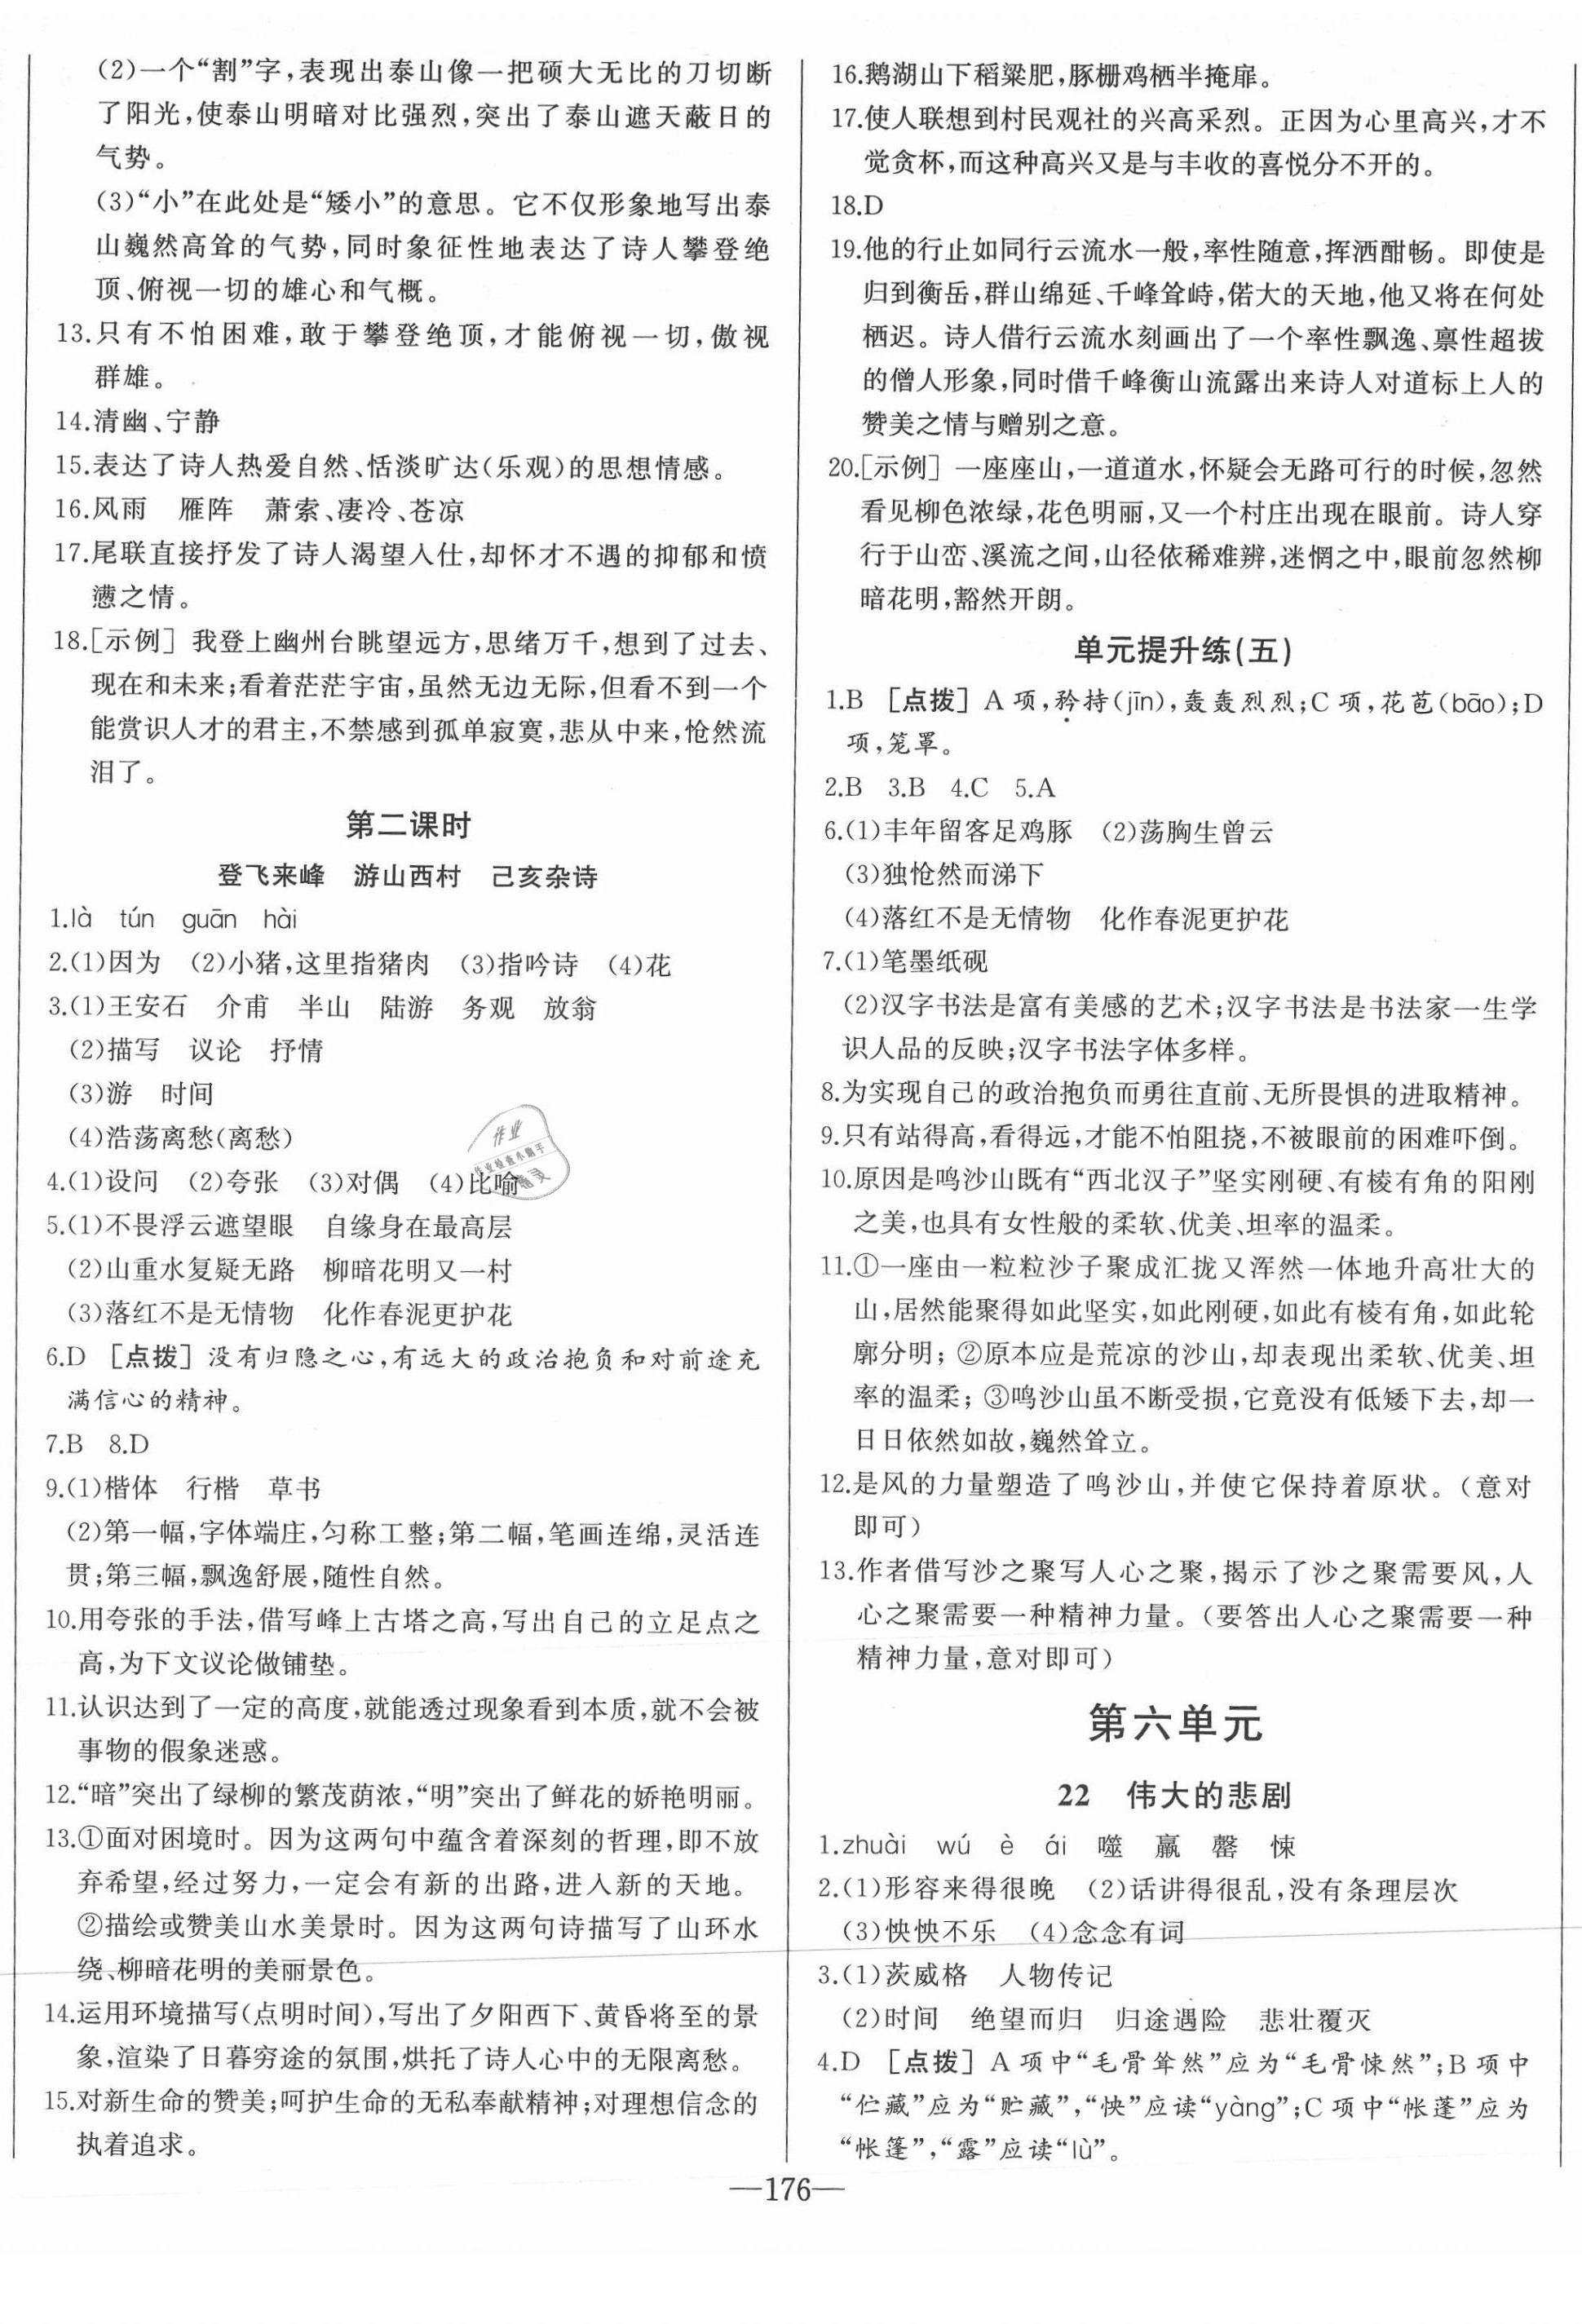 (2)一个“割”字,表现出泰山像一把硕大无比的刀切断
了阳光,使泰山明暗对比强烈,突出了泰山遮天蔽日的
气势。
(3)“小”在此处是“矮小”的意思。它不仅形象地写出泰
山巍然高耸的气势,同时象征性地表达了诗人攀登绝
顶、俯视一切的雄心和气概。
13.只有不怕困难,敢于攀登绝顶,才能俯视一切,傲视
群雄。
14.清幽、宁静
15.表达了诗人热爱自然、恬淡旷达(乐观)的思想情感。
16.风雨 雁阵 萧索、凄冷、苍凉
17.尾联直接抒发了诗人渴望入仕,却怀才不遇的抑郁和愤
懑之情。
18.[示例] 我登上幽州台眺望远方,思绪万千,想到了过去、
现在和未来;看着茫茫宇宙,虽然无边无际,但看不到一个
能赏识人才的君主,不禁感到孤单寂寞,悲从中来,怆然流
泪了。
第二课时
登飞来峰 游山西村 己亥杂诗
1.là tún guān hài
2.(1)因为 (2)小猪,这里指猪肉 (3)指吟诗 (4)花
3.(1)王安石 介甫 半山 陆游 务观 放翁
(2)描写 议论 抒情
(3)游 时间
(4)浩荡离愁(离愁)
4.(1)设问 (2)夸张 (3)对偶 (4)比喻
5.(1)不畏浮云遮望眼 自缘身在最高层
(2)山重水复疑无路 柳暗花明又一村
(3)落红不是无情物 化作春泥更护花
6.D [点拨] 没有归隐之心,有远大的政治抱负和对前途充
满信心的精神。
7.B 8.D
9.(1)楷体 行楷 草书
(2)第一幅,字体端庄,匀称工整;第二幅,笔画连绵,灵活连
贯;第三幅,飘逸舒展,随性自然。
10.用夸张的手法,借写峰上古塔之高,写出自己的立足点之
高,为下文议论做铺垫。
11.认识达到了一定的高度,就能透过现象看到本质,就不会被
事物的假象迷惑。
12.“暗”突出了绿柳的繁茂荫浓,“明”突出了鲜花的娇艳明丽。
13.①面对困境时。因为这两句中蕴含着深刻的哲理,即不放
弃希望,经过努力,一定会有新的出路,进入新的天地。
②描绘或赞美山水美景时。因为这两句诗描写了山环水
绕、柳暗花明的美丽景色。
14.运用环境描写(点明时间),写出了夕阳西下、黄昏将至的景
象,渲染了日暮穷途的氛围,烘托了诗人心中的无限离愁。
15.对新生命的赞美;呵护生命的无私奉献精神;对理想信念的
执着追求。
16.鹅湖山下稻粱肥,豚栅鸡栖半掩扉。
17.使人联想到村民观社的兴高采烈。正因为心里高兴,才不
觉贪杯,而这种高兴又是与丰收的喜悦分不开的。
18.D
19.他的行止如同行云流水一般,率性随意,挥洒酣畅。即使是
归到衡岳,群山绵延、千峰耸峙,偌大的天地,他又将在何处
栖迟。诗人借行云流水刻画出了一个率性飘逸、禀性超拔
的僧人形象,同时借千峰衡山流露出来诗人对道标上人的
赞美之情与赠别之意。
20.[示例] 一座座山,一道道水,怀疑会无路可行的时候,忽然
看见柳色浓绿,花色明丽,又一个村庄出现在眼前。诗人穿
行于山峦、溪流之间,山径依稀难辨,迷惘之中,眼前忽然柳
暗花明,豁然开朗。
单元提升练(五)
1.B [点拨] A 项,矜持(jīn),轰轰烈烈;C 项,花苞(bāo);D
项,笼罩。
2.B 3.B 4.C 5.A
6.(1)丰年留客足鸡豚 (2)荡胸生曾云
(3)独怆然而涕下
(4)落红不是无情物 化作春泥更护花
7.(1)笔墨纸砚
(2)汉字书法是富有美感的艺术;汉字书法是书法家一生学
识人品的反映;汉字书法字体多样。
8.为实现自己的政治抱负而勇往直前、无所畏惧的进取精神。
9.只有站得高,看得远,才能不怕阻挠,不被眼前的困难吓倒。
10.原因是鸣沙山既有“西北汉子”坚实刚硬、有棱有角的阳刚
之美,也具有女性般的柔软、优美、坦率的温柔。
11.①一座由一粒粒沙子聚成汇拢又浑然一体地升高壮大的
山,居然能聚得如此坚实,如此刚硬,如此有棱有角,如此轮
廓分明; ②原本应是荒凉的沙山,却表现出柔软、优美、坦
率的温柔; ③鸣沙山虽不断受损,它竟没有低矮下去,却一
日日依然如故,巍然耸立。
12.是风的力量塑造了鸣沙山,并使它保持着原状。(意对
即可)
13.作者借写沙之聚写人心之聚,揭示了沙之聚需要风,人
心之聚需要一种精神力量。(要答出人心之聚需要一种
精神力量,意对即可)
第六单元
22 伟大的悲剧
1.zhuài wú è ái 噬 羸 罄 悚
2.(1)形容来得很晚 (2)话讲得很乱,没有条理层次
(3)怏怏不乐 (4)念念有词
3.(1)茨威格 人物传记
(2)时间 绝望而归 归途遇险 悲壮覆灭
4.D [点拨] A 项中“毛骨耸然”应为“毛骨悚然”;B 项中
“伫藏”应为“贮藏”,“怏”应读“yàng”;C 项中“帐蓬”应为
“帐篷”,“露”应读“lù”。
—176—